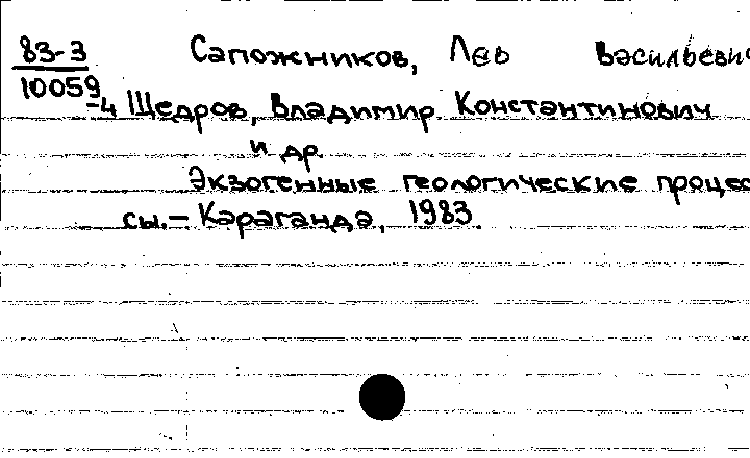 83-3 Сапожников, Лев Васильевич
10059-4 Щедров, Владимир Константинович
и др.
Экзогенные геологические процес
сы.- Караганда, 1983.